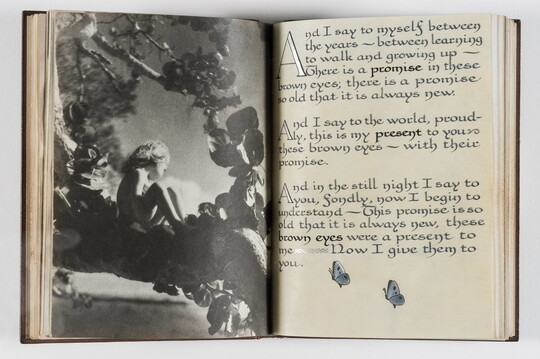 And I say to myself between
the years ~ between learning
to walk and growing up ~
There is a promise in these
brown eyes; there is a promise
so old that it is always new.
And I say to the world, proud-
ly, this is my present to you ~
these brown eyes ~ with their
promise.
And in the still night I say to
you, fondly, now I begin to
understand ~ This promise is so
old that it is always new, these
brown eyes were a present to
me ~ Now I give them to
you.